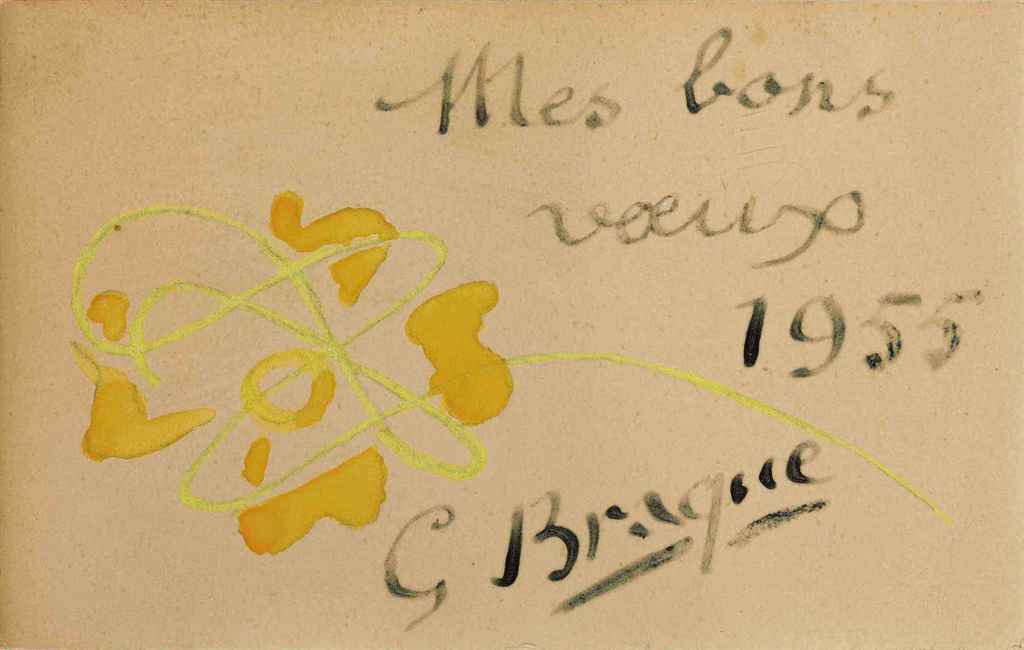 Mes bons
vœux
1955
G Braque